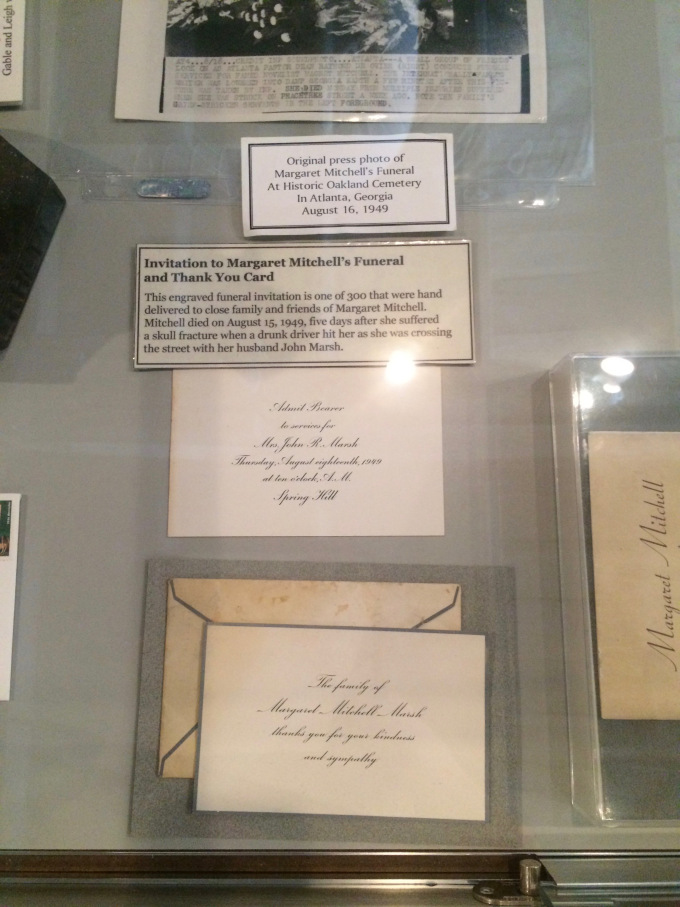 Gable and Leigh
SHE DIED
PEACHTREE STREET
IN THE LEFT FOREGROUND.
Original press photo of
Margaret Mitchell's Funeral
At Historic Oakland Cemetery
In Atlanta, Georgia
August 16, 1949
Invitation to Margaret Mitchell's Funeral
and Thank You Card
This engraved funeral invitation is one of 300 that were hand
delivered to close family and friends of Margaret Mitchell.
Mitchell died on August 15, 1949, five days after she suffered
a skull fracture when a drunk driver hit her as she was crossing
the street with her husband John Marsh.
Admit Bearer
to services for
Mrs. John R. Marsh
Thursday, August eighteenth, 1949
at ten o'clock, A.M.
Spring Hill
Margaret Mitchell
The family of
Margaret Mitchell Marsh
thanks you for your kindness
and sympathy